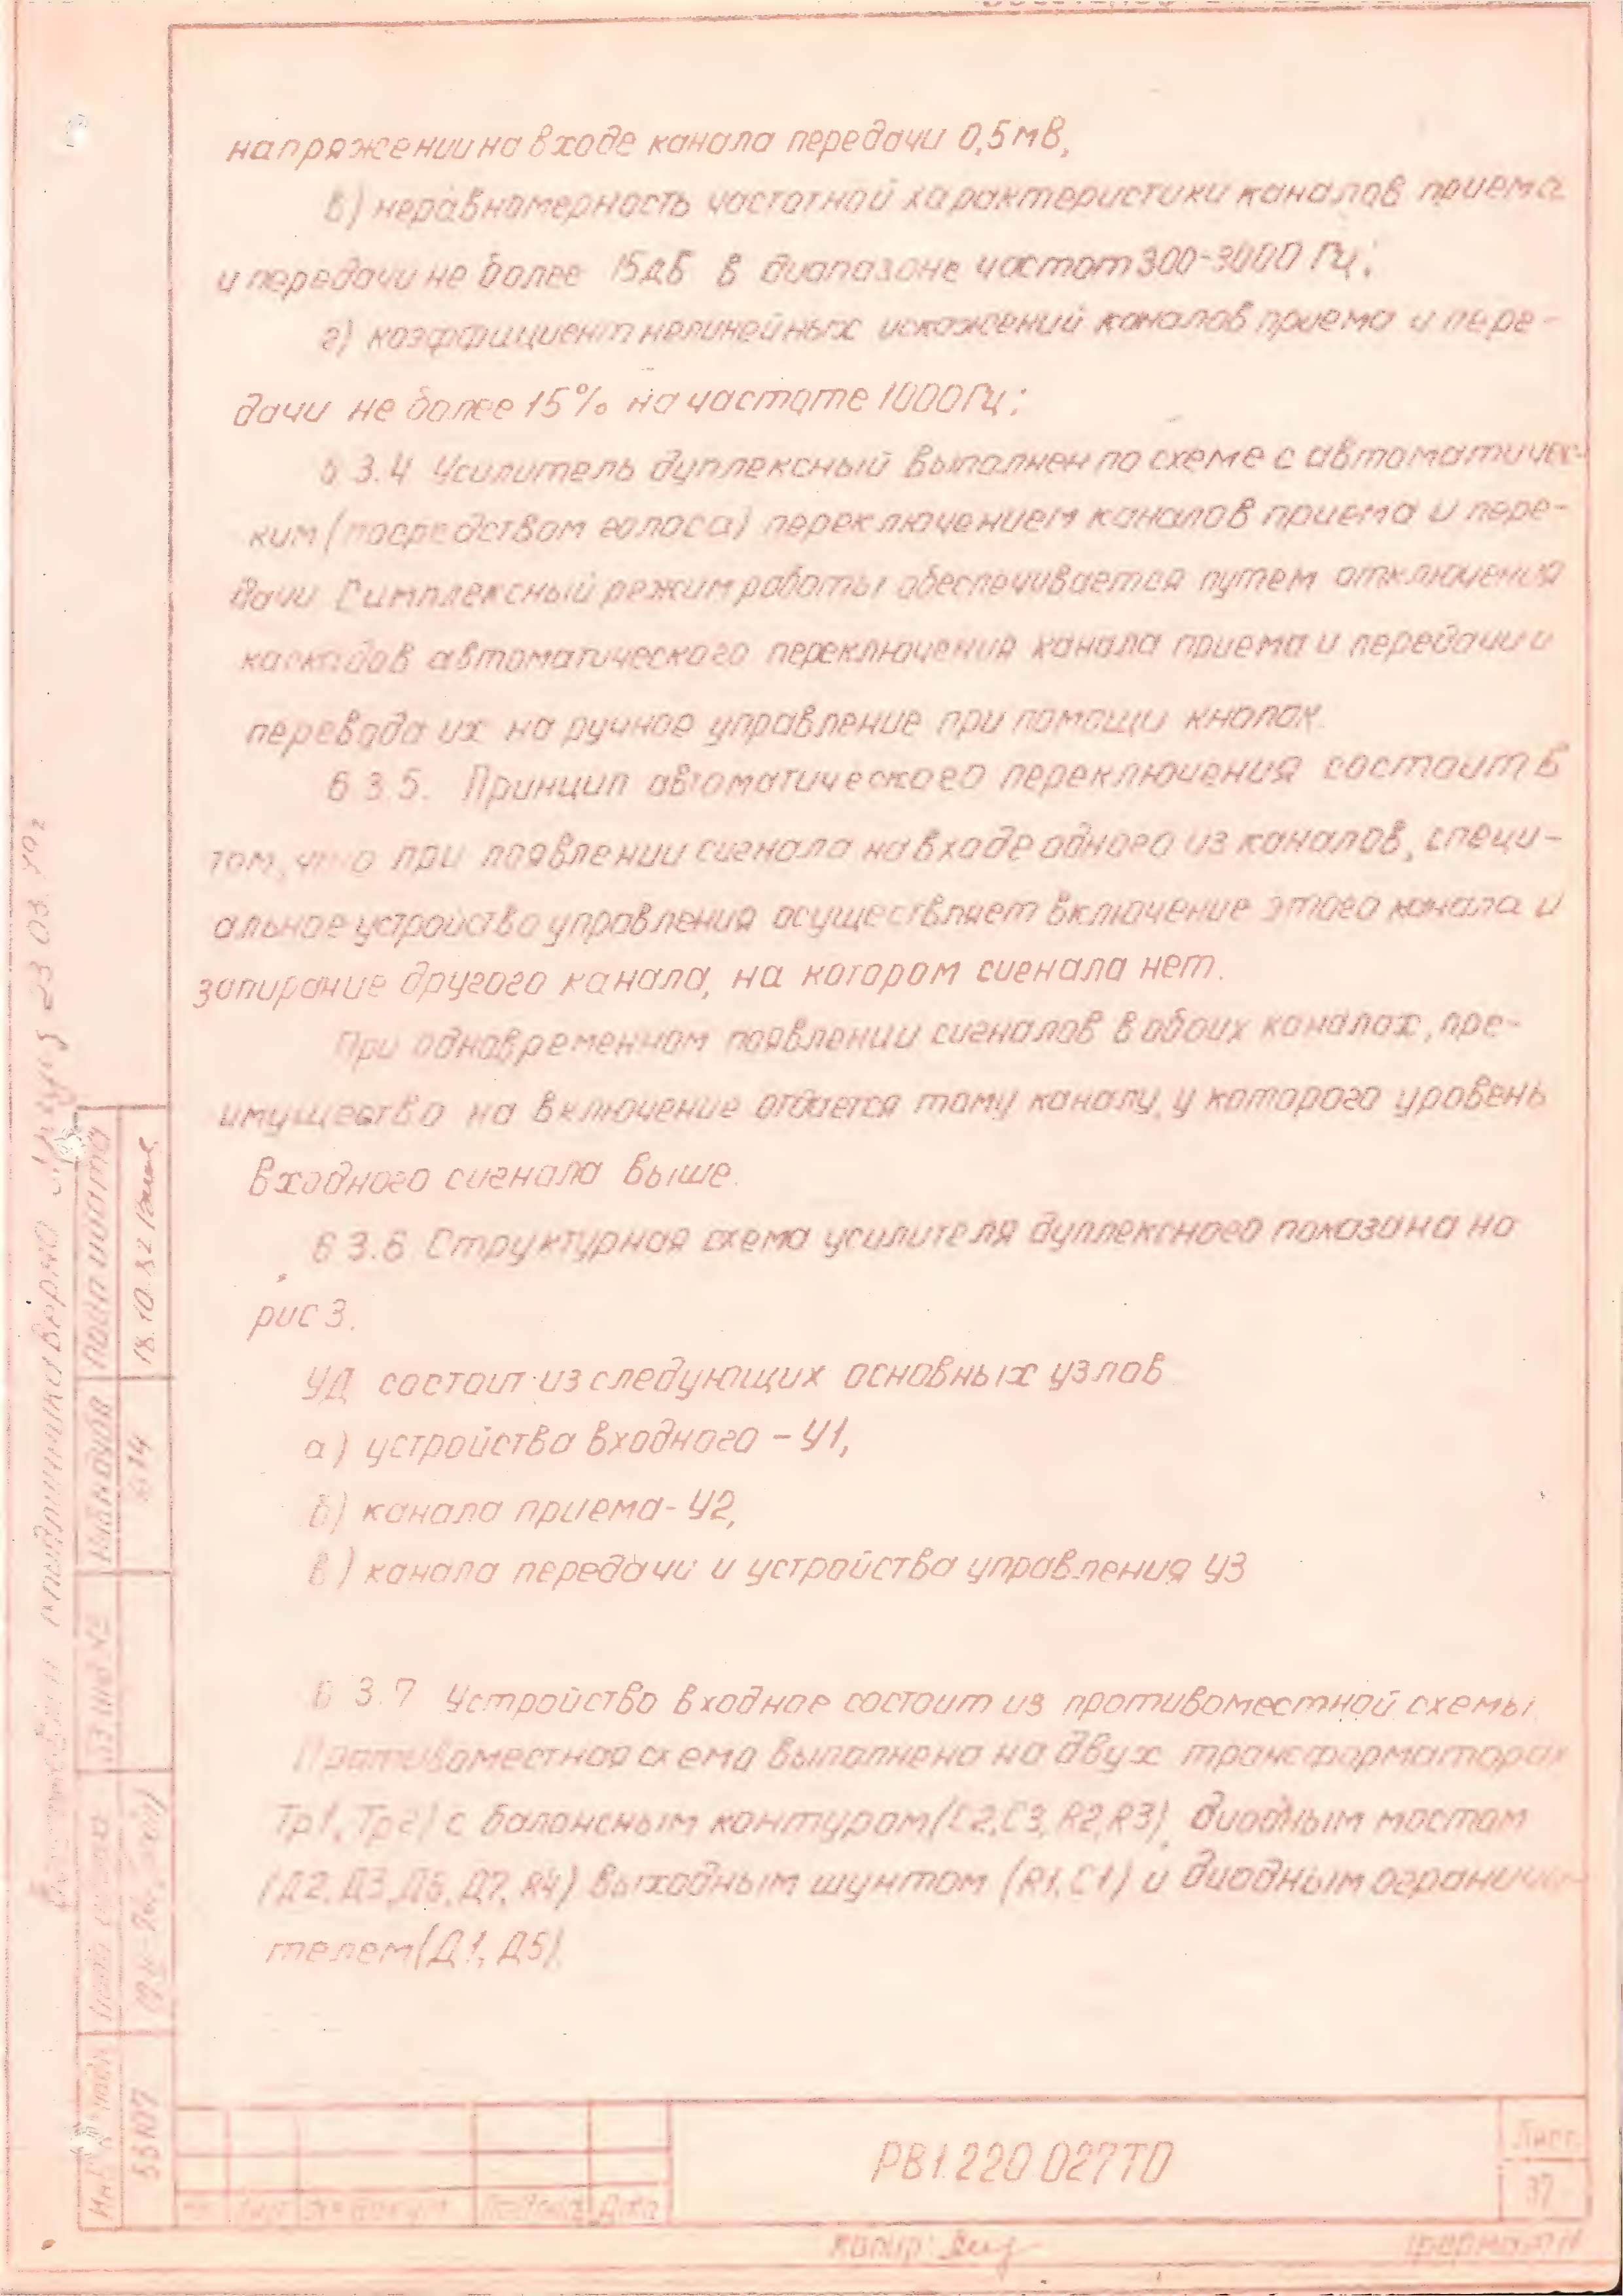 напряжении на входе канала передачи 0,5 мВ,
в) неравномерность частотной характеристики каналов приема
и передачи не более 15дБ в диапазоне частот 300-3000 Гц;
г) коэффициент нелинейных искажений каналов приема и пере-
дачи не более 15% на частоте 1000Гц;
6 3.4 Усилитель дуплексный выполнен по схеме с автоматичес-
ким (посредством голоса) переключением каналов приема и пере-
дачи Симплексный режим работы обеспечивается путем отключения
каскадов автоматического переключения канала приема и передачи и
перевода их на ручное управление при помощи кнопок
6 3.5. Принцип автоматического переключения состоит в
том, что при появлении сигнала на входе одного из каналов, специ-
альное устройство управления осуществляет включение этого канала и
запирание другого канала, на котором сигнала нет.
При одновременном появлении сигналов в обоих каналах, пре-
имущество на включение отдается тому каналу, у которого уровень
входного сигнала выше.
6 3.6 Структурная схема усилителя дуплексного показана на
рис 3.
УД состоит из следующих основных узлов
а) устройства входного - У1,
б) канала приема - У2,
в) канала передачи и устройства управления У3
6 3.7 Устройство входное состоит из противоместной схемы
Противоместная схема выполнена на двух трансформаторах
Тр1, Тр2) с балансным контуром (С2, С3, R2, R3), диодным мостом
(Д2, Д3, Д6, Д7, R4) выходным шунтом (R1, С1) и диодным ограничи-
телем (Д1, Д5).
РВ1.220 027ТО
Лист
37
Лист № докум Подпись Дата
Копир:
Формат
Подп и дата
18.10.82
Инв № дубл
Вз инв №
Инв № подл
55107
подлинника верна
23 03.